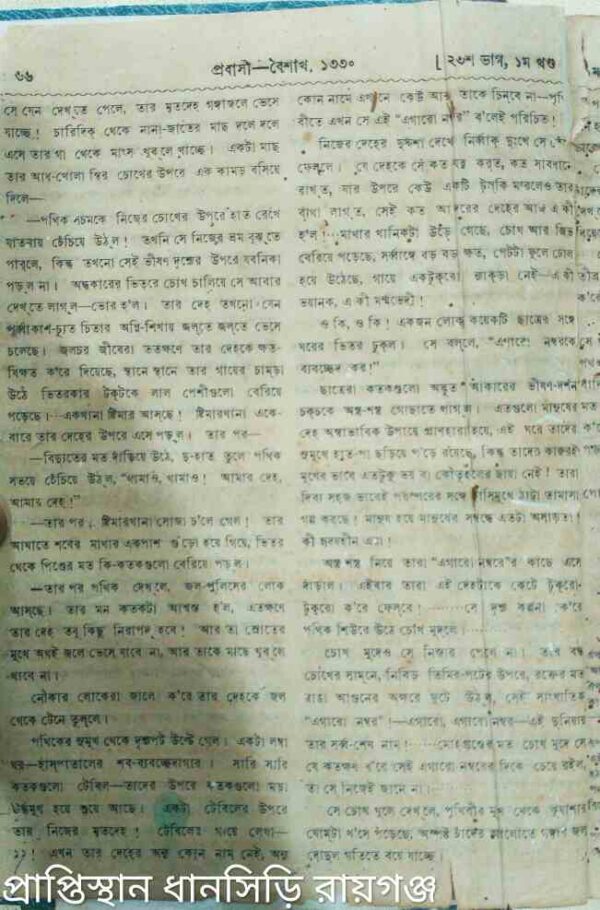 ৩৬
প্রবাসী—বৈশাখ, ১৩৩০
[ ২৩শ ভাগ, ১ম খণ্ড
সে যেন দেখতে পেলে, তার মৃতদেহ গঙ্গাজলে ভেসে
যাচ্ছে! চারিদিক থেকে নানা-জাতের মাছ দলে দলে
এসে তার গা থেকে মাংস খুবলে খাচ্ছে। একটা মাছ
তার আধ-খোলা স্থির চোখের উপরে এক কামড় বসিয়ে
দিলে—
—পথিক চমকে নিজের চোখের উপরে হাত রেখে
যাতনায় চেঁচিয়ে উঠল! তখনি সে নিজের ভ্রম বুঝতে
পারলে, কিন্তু তখনো সেই ভীষণ দৃশ্যের উপরে যবনিকা
পড়ল না। অন্ধকারের ভিতরে চোখ চালিয়ে সে আবার
দেখতে লাগল—ভোর হ'ল। তার দেহ তখনো যেন
পূর্বাকাশ-চ্যুত চিতার অগ্নি-শিখায় জলতে জলতে ভেসে
চলেছে। জলচর জীবেরা ততক্ষণে তার দেহকে ক্ষত-
বিক্ষত ক'রে দিয়েছে, স্থানে স্থানে তার গায়ের চামড়া
উঠে ভিতরকার টকটকে লাল পেশীগুলো বেরিয়ে
পড়েছে। ···একখানা ষ্টিমার আসছে! ষ্টিমারখানা একে-
বারে তার দেহের উপরে এসে পড়ল। তার পর—
—বিদ্যুতের মত দাঁড়িয়ে উঠে, দু-হাত তুলে পথিক
সভয়ে চেঁচিয়ে উঠল, "থামাও, থামাও! আমার দেহ,
আমার দেহ!"
—তার পর। ষ্টিমারখানা সোজা চ'লে গেল! তার
আঘাতে শবের মাথার একপাশ গুঁড়ো হয়ে গিয়ে, ভিতর
থেকে পিণ্ডের মত কি-কতকগুলো বেরিয়ে পড়ল।
—তার পর পথিক দেখলে, জল-পুলিসের লোক
আসছে। তার মন কতকটা আশ্বস্ত হ'ল, এতক্ষণে
তার দেহ তবু কিছু নিরাপদ হবে! আর তা স্রোতের
মুখে অথই জলে ভেসে যাবে না, আর তাকে মাছে খুবলে
খাবে না।
নৌকার লোকেরা জালে ক'রে তার দেহকে জল
থেকে টেনে তুললে।
পথিকের সুমুখ থেকে দৃশ্যপট উল্টে গেল। একটা লম্বা
ঘর—হাসপাতালের শব-ব্যবচ্ছেদাগার। সারি সারি
কতকগুলো টেবিল—তাদের উপরে কতকগুলো মড়া
উর্দ্ধমুখ হয়ে শুয়ে আছে। একটা টেবিলের উপরে
তার নিজের মৃতদেহ! টেবিলের গায়ে লেখা—
১১! এখন তার দেহের অন্য কোন নাম নেই, অন্য
কোন নামে এখানে কেউ আর তাকে চিনবে না—পৃথি
বীতে এখন সে এই "এগারো নম্বর" ব'লেই পরিচিত!
নিজের দেহের দুর্দ্দশা দেখে নির্ব্বাক্ দুঃখে সে
ফেললে। যে দেহকে সে কত যত্ন করত, কত সাবধানে
রাখত, যার উপরে কেউ একটি টুসকি মারলেও তার
ব্যথা লাগত, সেই কত আদরের দেহের আজ এ কী
হ'ল! ···মাথার খানিকটা উড়ে গেছে, চোখ আর জিভ
বেরিয়ে পড়েছে, সর্ব্বাঙ্গে বড় বড় ক্ষত, পেটটা ফুলে ঢোল
হয়ে উঠেছে, গায়ে একটুকরো ন্যাকড়া নেই—এ কী
ভয়ানক, এ কী মর্ম্মভেদী!
ও কি, ও কি! একজন লোক কয়েকটি ছাত্রের সঙ্গে
ঘরের ভিতর ঢুকল। সে বললে, "এগারো নম্বরকে
ব্যবচ্ছেদ কর!"
ছাত্রেরা কতকগুলো অদ্ভুত আকারের ভীষণ-দর্শন
চকচকে অস্ত্র-শস্ত্র গোছাতে লাগল। এতগুলো মানুষের
দেহ অস্বাভাবিক উপায়ে প্রাণহারা হয়ে, এই ঘরে তাদের
সুমুখে হাত-পা ছড়িয়ে প'ড়ে রয়েছে, কিন্তু তাদের কারুরই
মুখের ভাবে এতটুকু ভয় বা কৌতূহলের ছায়া নেই! তারা
দিব্য সহজ ভাবেই পরস্পরের সঙ্গে হাসিমুখে ঠাট্টা তামাসা
গল্প করছে! মানুষ হয়ে মানুষের সম্বন্ধে এতটা অসাড়তা!
কী হৃদয়হীন এরা!
অস্ত্র শস্ত্র নিয়ে তারা "এগারো নম্বরে"র কাছে এসে
দাঁড়াল। এইবার তারা এই দেহটাকে কেটে টুকরো-
টুকরো ক'রে ফেলবে! ······সে দৃশ্য কল্পনা ক'রে
পথিক শিউরে উঠে চোখ মুদলে।···
চোখ মুদেও সে নিস্তার পেলে না। তার বন্ধ
চোখের সামনে, নিবিড় তিমির-পটের উপরে, রক্তের মত
রাঙা আগুনের অক্ষরে ফুটে উঠল, সেই সাংঘাতিক
"এগারো নম্বর"!—এগারো, এগারো নম্বর—এই দুনিয়ায়
তার সর্ব্ব-শেষ নাম! ······মোহগ্রস্তের মত চোখ মুদে সে
যে কতক্ষণ ধ'রে সেই এগারো নম্বরের দিকে চেয়ে রইল,
তা সে নিজেই জানে না।
সে চোখ খুলে দেখলে, পৃথিবীর মুখ থেকে কুয়াশার
ঘোমটা খ'সে পড়েছে, অস্পষ্ট চাঁদের আলোতে গঙ্গার জল
দোদুল গতিতে বয়ে যাচ্ছে।
প্রাপ্তিস্থান ধানসিড়ি রায়গঞ্জ